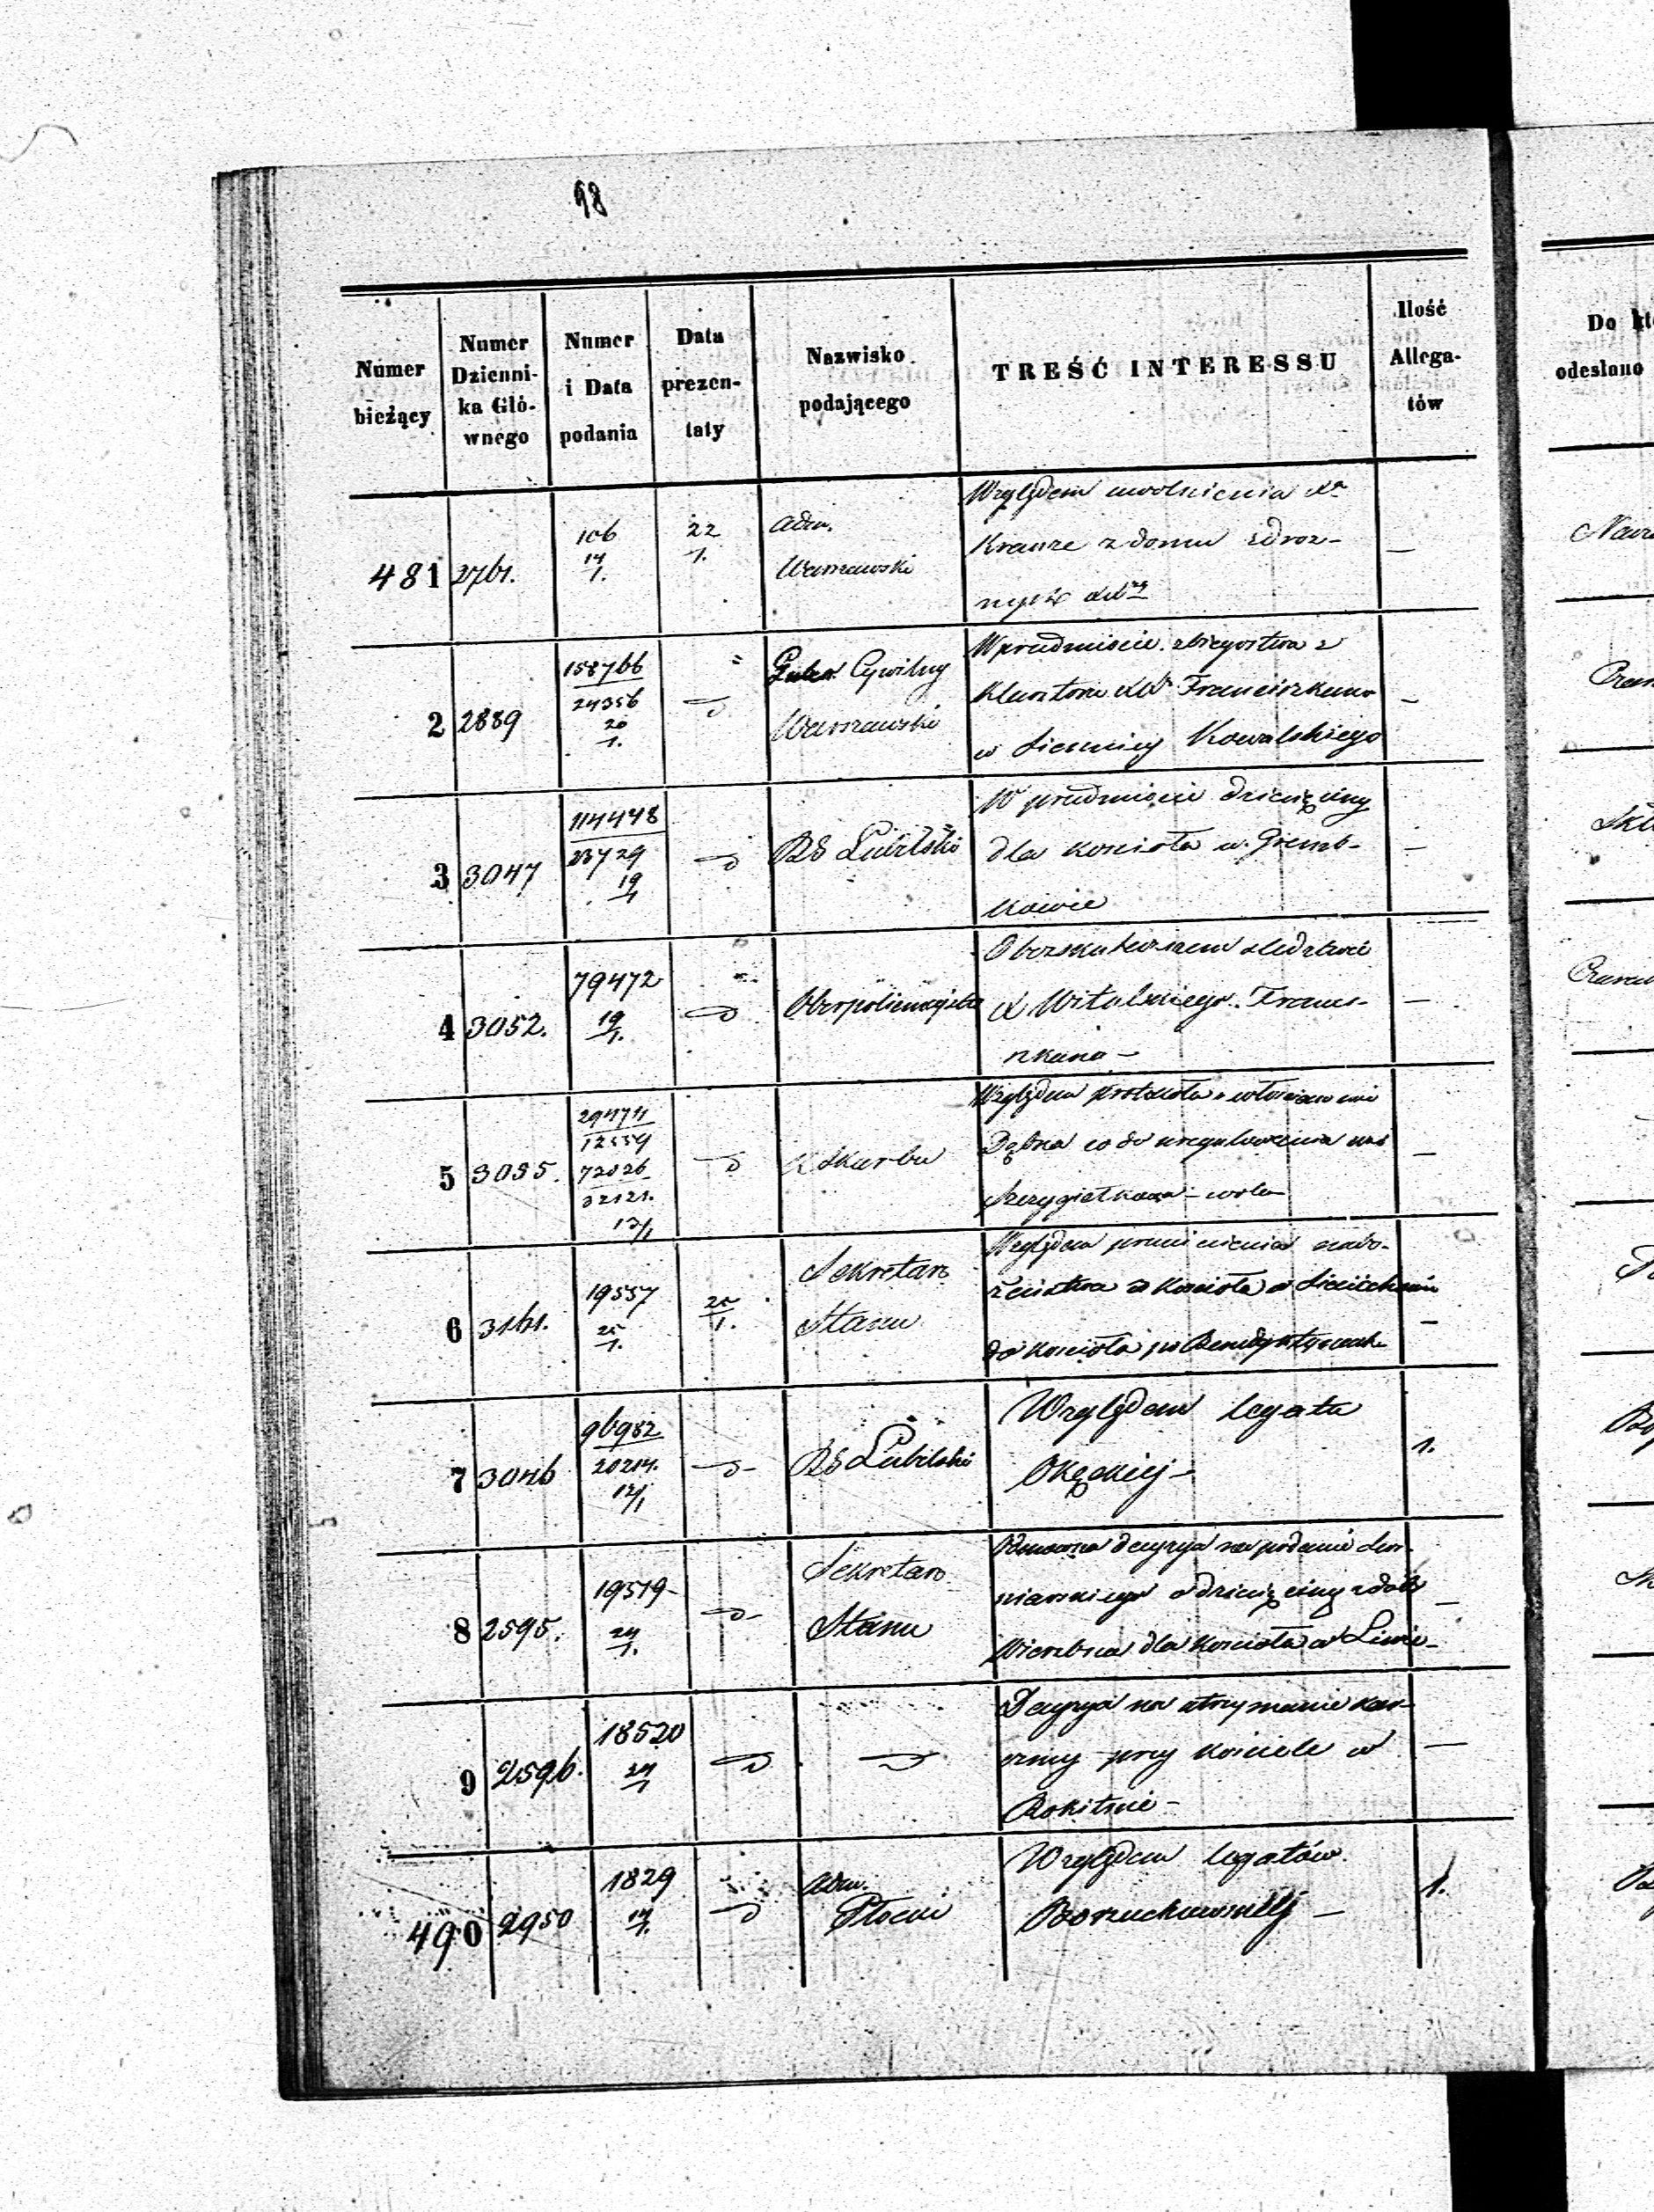 98
Numer bieżący
Numer Dzienni-
ka Głó-
wnego
Numer i Data podania
Data prezen-
taty
Nazwisko podającego
TREŚĆ INTERESSU
Ilość Allega-
tów
Do
odesłano
481 2761. 106 14/1. 22/1. Adm. Warszawski
Względem uwolnienia Xa
Krauze z domu zdroż-
nych —
2 2889 158766 24356 20/1. Guber. Cywilny Warszawski
W przedmiocie zbiegostwa z
Klasztoru Franciszkana
w Siennicy Kowalskiego —
3 3047 114448 23729 19/1 RG Lubelski
W przedmiocie dziesięciny
dla kościoła w Gremb-
kowie —
4 3052. 79472 19/1. Oberpolicmajster
O bezskutecznem śledztwie
X Witulskiego Franci-
szkana — —
5 3055. 29471 12559 72026 32121. 13/1 K. Skarbu
Względem protokołu
Dębna co do uregulowania
wola —
6 3161. 19557 25/1. 25/1. Sekretarz Stanu
Względem przeniesienia nabo-
żeństwa z Kościoła w Sieciechowie
do Kościoła po Benedyktynach —
7 3046 96982 20214. 12/1 RG Lubelski
Względem legatu
Okęckiej — 1.
8 2595. 19519 24/1. Sekretarz Stanu
Odmowna decyzya na podanie
o dziesięciny z dóbr
Wierzbna dla kościoła w Liwie —
9 2596. 18520 24/1
Decyzya na utrzymanie kar-
czmy przy kościele w
Rokitnie — —
490 2950 1829 14/1. Adm. Płocki
Względem legatów
— 1.